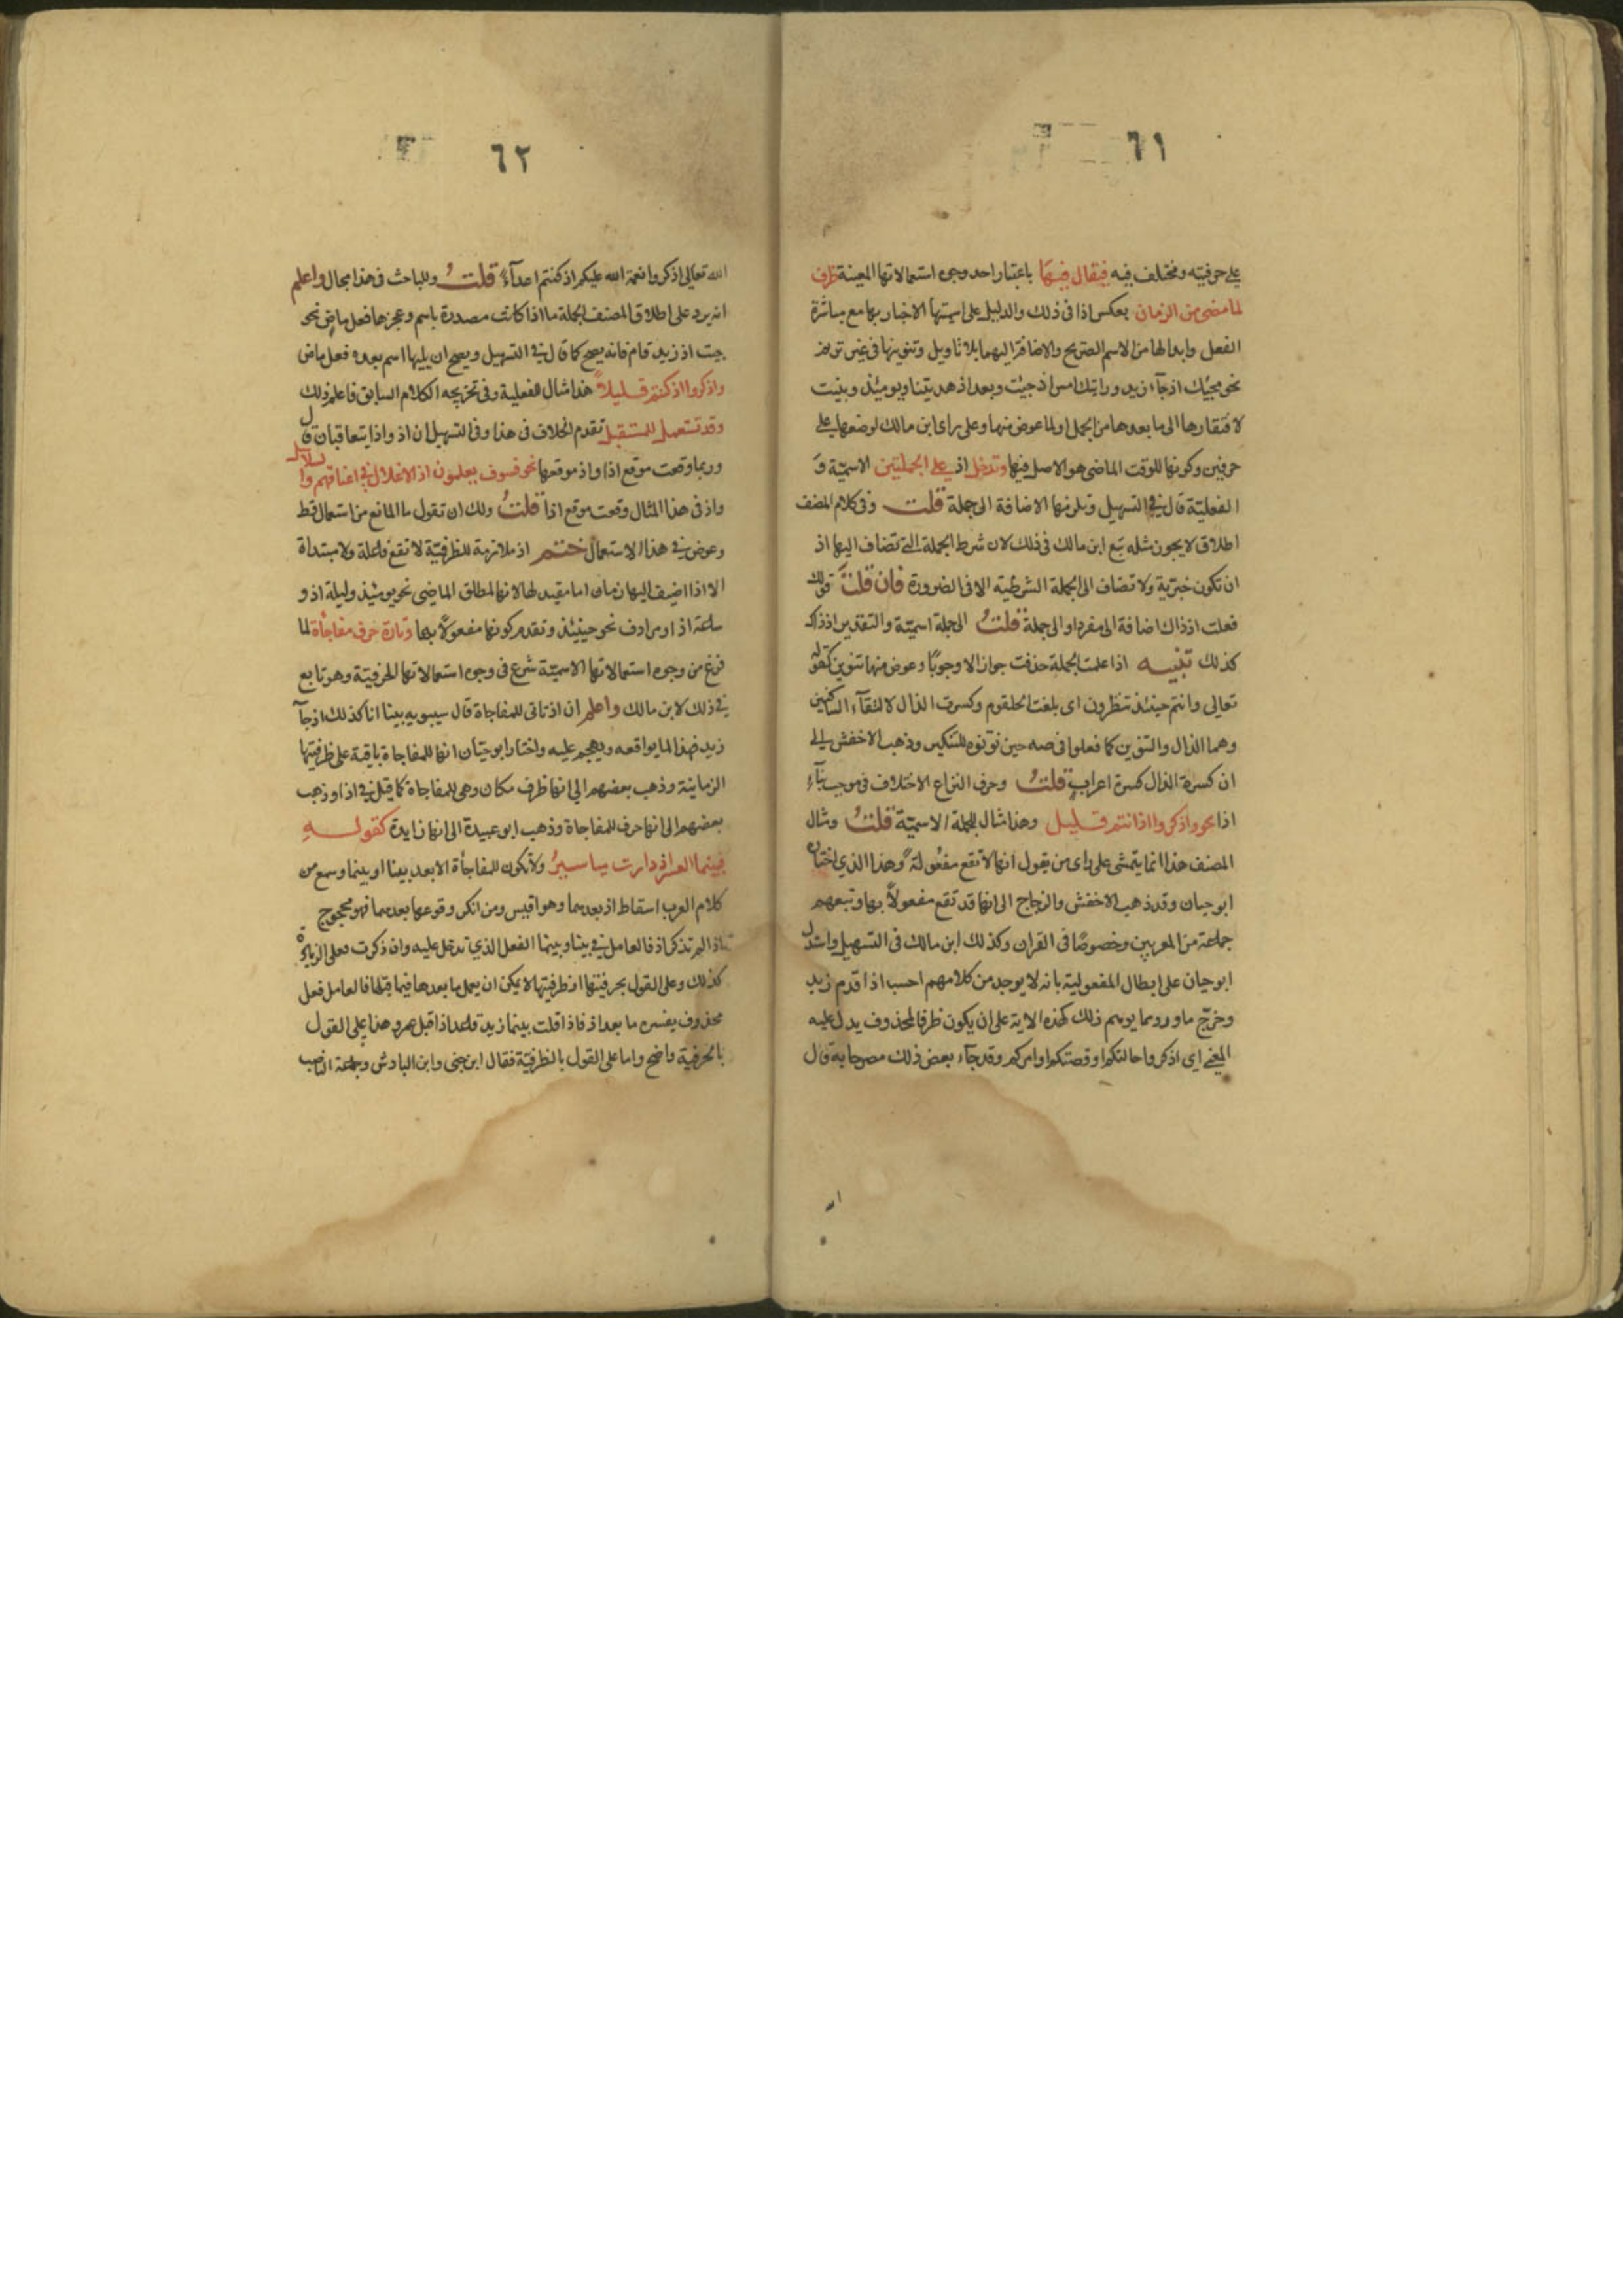 ٦١
على حرفيته ومختلف فيه فيقال فيها باعتبار احد وجهى استعمالاتها المعينة ظرف
لما مضى من الزمان بعكس اذا فى ذلك والدليل على اسميتها الاخبار بها مع مباشرة
الفعل وابدالها من الاسم الصريح والاضافة اليها بلا تاويل وتنوينها فى غير ترنم
نحو مجيئك اذ جاء زيد ورايتك امس اذ جيت وبعد اذ هديتنا ويومئذ وبنيت
لافتقارها الى ما بعدها من الجمل او لما عوض منها وعلى راى ابن مالك لوضعها على
حرفين وكونها للوقت الماضى هو الاصل فيها وتدخل اذ على الجملتين الاسمية و
الفعلية قال فى التسهيل وتلزمها الاضافة الى جملة قلت وفى كلام المصنف
اطلاق لا يجوز مثله تبع ابن مالك فى ذلك لان شرط الجملة التى تضاف اليها اذ
ان تكون خبرية ولا تضاف الى الجملة الشرطية الا فى الضرورة فان قلت قولك
فعلت اذ ذاك اضافة الى مفرد او الى جملة قلت الى جملة اسمية والتقدير اذ ذاك
كذلك تنبيه اذا علمت الجملة حذفت جوازا لا وجوبًا وعوض منها تنوين كقوله
تعالى وانتم حينئذ تنظرون اى بلغت الحلقوم وكسرت الذال لالتقاء الساكنين
وهما الذال والتنوين كما فعلوا فى صه حين نونوه للتنكير وذهب الاخفش الى
ان كسرة الذال كسرة اعراب قلتُ وحرف النزاع الاختلاف فى موجب بناء
اذا نحو واذكروا اذ انتم قليل وهذا مثال للجملة الاسمية قلتُ ومثال
المصنف هذا انما يتمشى على راى من يقول انها لا تقع مفعولة وهذا الذى اختاره
ابو حيان وقد ذهب الاخفش والزجاج الى انها قد تقع مفعولاً بها وتبعهم
جماعة من المعربين وخصوصًا فى القران وكذلك ابن مالك فى التسهيل واستدل
ابو حيان على ابطال المفعولية بانه لا يوجد من كلامهم احب اذا قدم زيد
وخرّج ما ورد مما يوهم ذلك كهذه الاية على ان يكون ظرفا لمحذوف يدل عليه
المعنى اى اذكروا حالتكم او قصتكم او امركم وقد جاء بعض ذلك مصرحا به قال
٦٢
الله تعالى اذكروا نعمة الله عليكم اذ كنتم اعداء قلتُ وللباحث فى هذا مجال واعلم
انه يرد على اطلاق المصنف الجملة ما اذا كانت مصدرة باسم وعجزها فعل ماض نحو
جيت اذ زيد قام فانه يصح كما قال فى التسهيل ويصح ان يليها اسم بعده فعل ماض
واذكروا اذ كنتم قليلاً هذا مثال الفعلية وفى تخريجه الكلام السابق فاعلم ذلك
وقد تستعمل للمستقبل تقدم الخلاف فى هذا وفى التسهيل ان اذ واذا يتعاقبان قال
وربما وقعت موقع اذا واذ موقعها نحو فسوف يعلمون اذ الاغلال فى اعناقهم والسلاسل
واذ فى هذا المثال وقعت موقع اذا قلتُ ولك ان تقول ما المانع من استعمال قط
وعوض فى هذا الاستعمال ختم اذ ملازمة للظرفية لا تقع فاعلة ولا مبتداة
الا اذا اضيف اليها زمان اما مقيد لها لانها لمطلق الماضى نحو يومئذ وليلة اذ و
ساعة اذ او مرادف نحو حينئذ وتقدم كونها مفعولاً بها وتارة حرف مفاجأة لما
فرغ من وجوه استعمالاتها الاسمية شرع فى وجوه استعمالاتها الحرفية وهو تابع
فى ذلك لابن مالك واعلم ان اذ تاتى للمفاجاة قال سيبويه بينا انا كذلك اذ جاء
زيد فهذا لما يوافقه ويهجم عليه واختار ابو حيان انها للمفاجاة باقية على ظرفيتها
الزمانية وذهب بعضهم الى انها ظرف مكان وهى للمفاجاة كما قيل فى اذا وذهب
بعضهم الى انها حرف للمفاجاة وذهب ابو عبيدة الى انها زايدة كقولـــه
فبينما العسر اذ دارت مياسيرُ ولا تكون للمفاجأة الا بعد بينا او بينما وسمع من
كلام العرب اسقاط اذ بعدهما وهو اقيس ومن انكر وقوعها بعدهما فهو محجوج
فاذا لم تذكر اذ فالعامل فى بينا وبينما الفعل الذى تدخل عليه وان ذكرت فعلى الزيادة
كذلك وعلى القول بحرفيتها او ظرفيتها لا يمكن ان يعمل ما بعدها فيما قبلها فالعامل فعل
محذوف يفسره ما بعد اذ فاذا قلت بينما زيد قاعد اذ اقبل عمرو هذا على القول
بالحرفية واضح واما على القول بالظرفية فقال ابن جنى وابن الباذش وجماعة الناصب